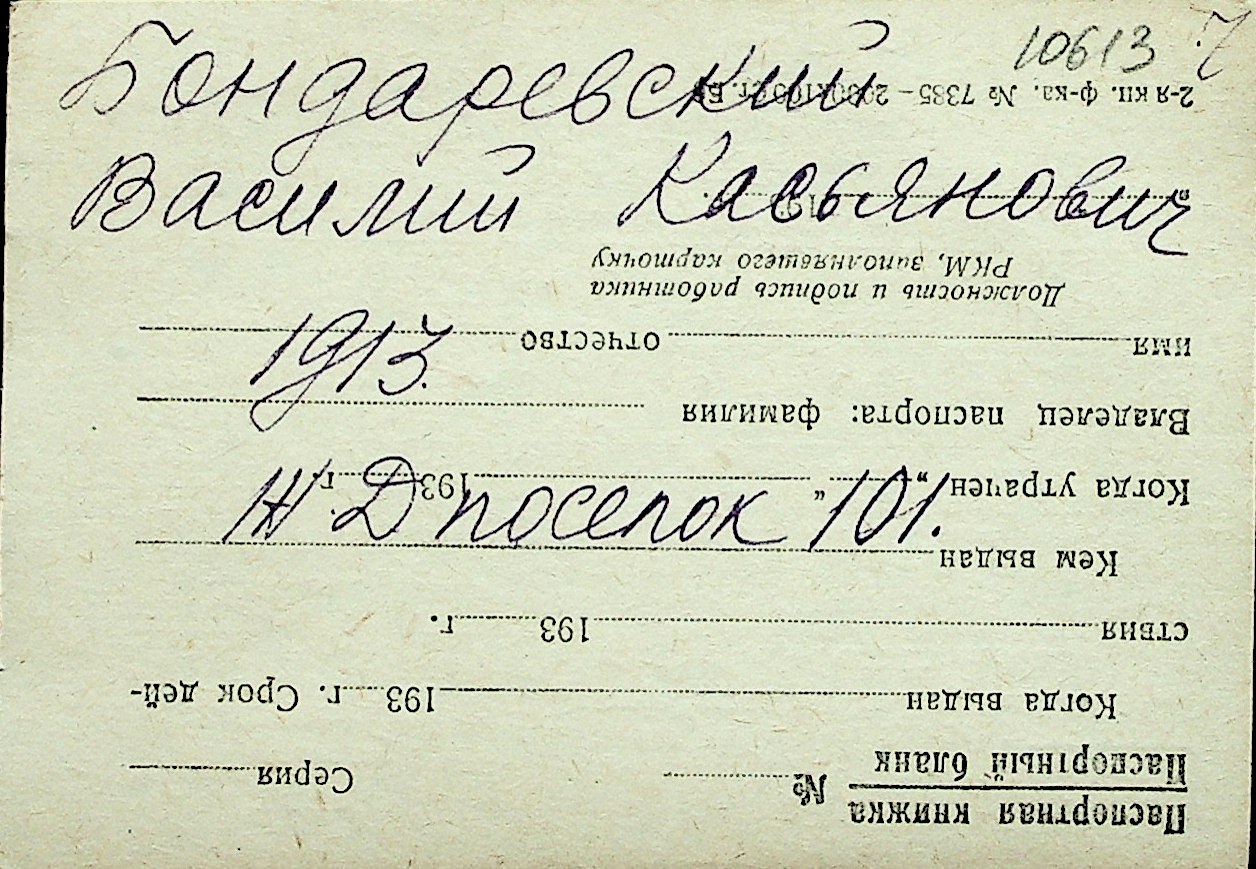 10613 7
Бондаревский
Василий Касьянович
1913.
Ж.Д поселок 101.
Паспортная книжка
Паспортный бланк № Серия
Когда выдан 193 г. Срок дей-
ствия 193 г.
Кем выдан
Когда утрачен „ “ 193 г.
Владелец паспорта: фамилия
имя отчество
Должность и подпись работника
РКМ, заполнявшего карточку
2-я кп. ф-ка. № 7385—